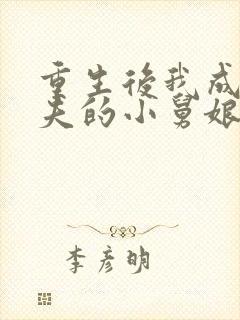 重生後我成
夫的小舅娘
李彦明